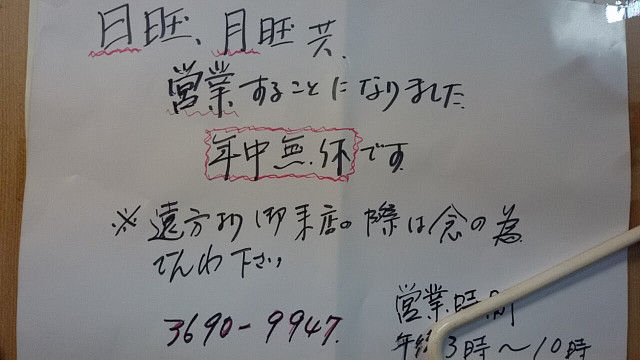 日曜、月曜共
営業することになりました
年中無休です
※遠方より御来店の際は念の為
でんわ下さい
3690-9947.
営業時間
午後3時〜10時